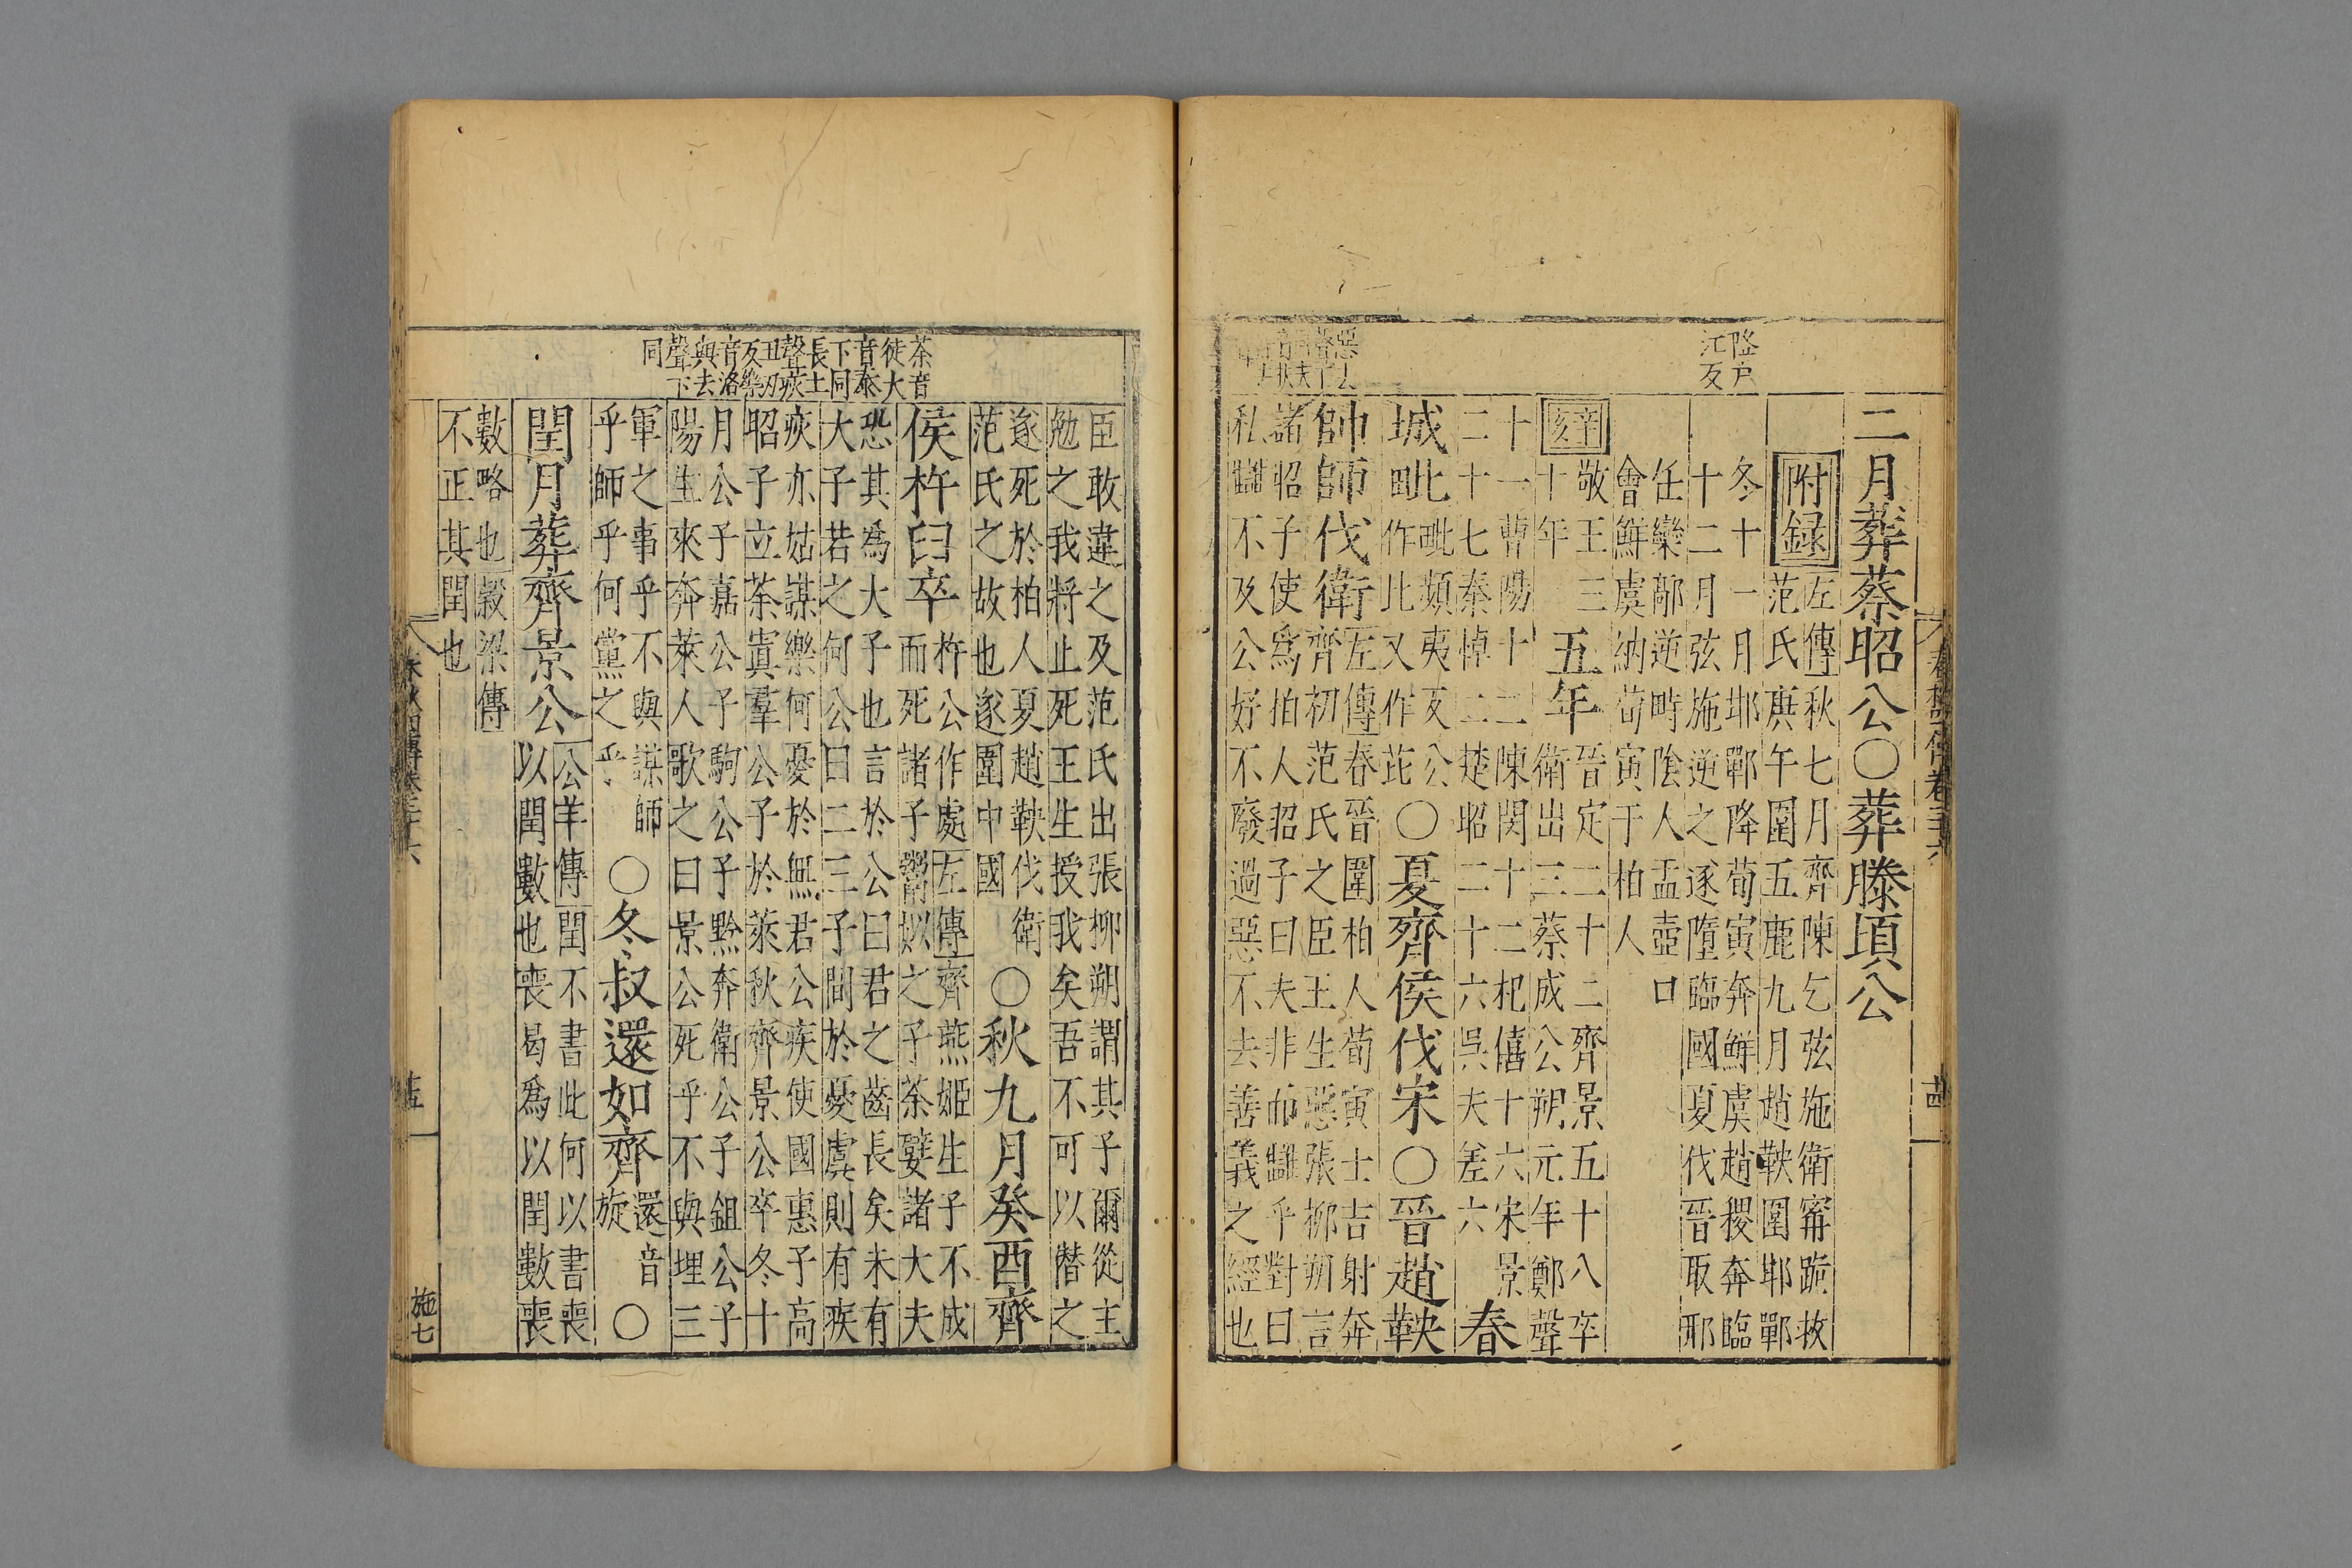 降戶
江反
二月葬蔡昭公○葬滕頃公
附錄
左傳秋七月齊陳乞弦施衛甯跪救
范氏庚午圍五鹿九月趙鞅圍邯鄲
冬十一月邯鄲降荀寅奔鮮虞趙稷奔臨
十二月弦施逆之遂墮臨國夏伐晉取邢
任欒鄗逆畤陰人盂壺口
會鮮虞納荀寅于柏人
辛亥
敬王三
十年
五年
晉定二十二齊景五十八卒
衛出三蔡成公朔元年鄭聲
十一曹陽十二陳閔十二杞僖十六宋景
二十七秦悼二楚昭二十六吳夫差六
春
城毗
毗頻夷反公
作比又作芘
○夏齊侯伐宋○晉趙鞅
帥師伐衛
左傳春晉圍柏人荀寅士吉射奔
齊初范氏之臣王生惡張柳朔言
諸昭子使爲柏人昭子曰夫非而讎乎對曰
私讎不及公好不廢過惡不去善義之經也
茶音
徒大
音泰
下同
長上
聲疾
丑刃
反樂
音洛
與去
聲下
同
臣敢違之及范氏出張柳朔謂其子爾從主
勉之我將止死王生授我矣吾不可以僭之
遂死於柏人夏趙鞅伐衛
范氏之故也遂圍中國
○秋九月癸酉齊
侯杵臼卒
杵公作處左傳齊燕姬生子不成
而死諸子鬻姒之子荼嬖諸大夫
恐其爲大子也言於公曰君之齒長矣未有
大子若之何公曰二三子間於憂虞則有疾
疢亦姑謀樂何憂於無君公疾使國惠子高
昭子立荼寘羣公子於萊秋齊景公卒冬十
月公子嘉公子駒公子黔奔衛公子鉏公子
陽生來奔萊人歌之曰景公死乎不與埋三
軍之事乎不與謀師
乎師乎何黨之乎
○冬叔還如齊
還音
旋
○
閏月葬齊景公
公羊傳閏不書此何以書喪
以閏數也喪曷爲以閏數喪
數略也穀梁傳
不正其閏也
春秋四傳卷三十六
施七